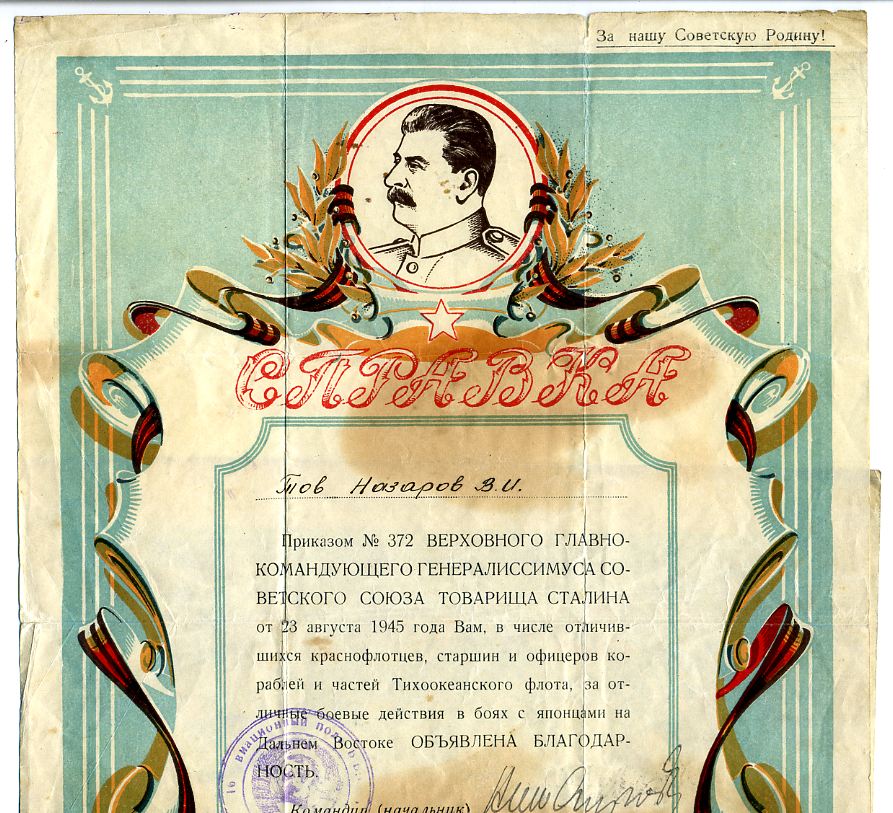 За нашу Советскую Родину!
СПРАВКА
Тов Назаров В.И.
Приказом № 372 ВЕРХОВНОГО ГЛАВНО-
КОМАНДУЮЩЕГО ГЕНЕРАЛИССИМУСА СО-
ВЕТСКОГО СОЮЗА ТОВАРИЩА СТАЛИНА
от 23 августа 1945 года Вам, в числе отличив-
шихся краснофлотцев, старшин и офицеров ко-
раблей и частей Тихоокеанского флота, за от-
личные боевые действия в боях с японцами на
Дальнем Востоке ОБЪЯВЛЕНА БЛАГОДАР-
НОСТЬ.
Командир (начальник)